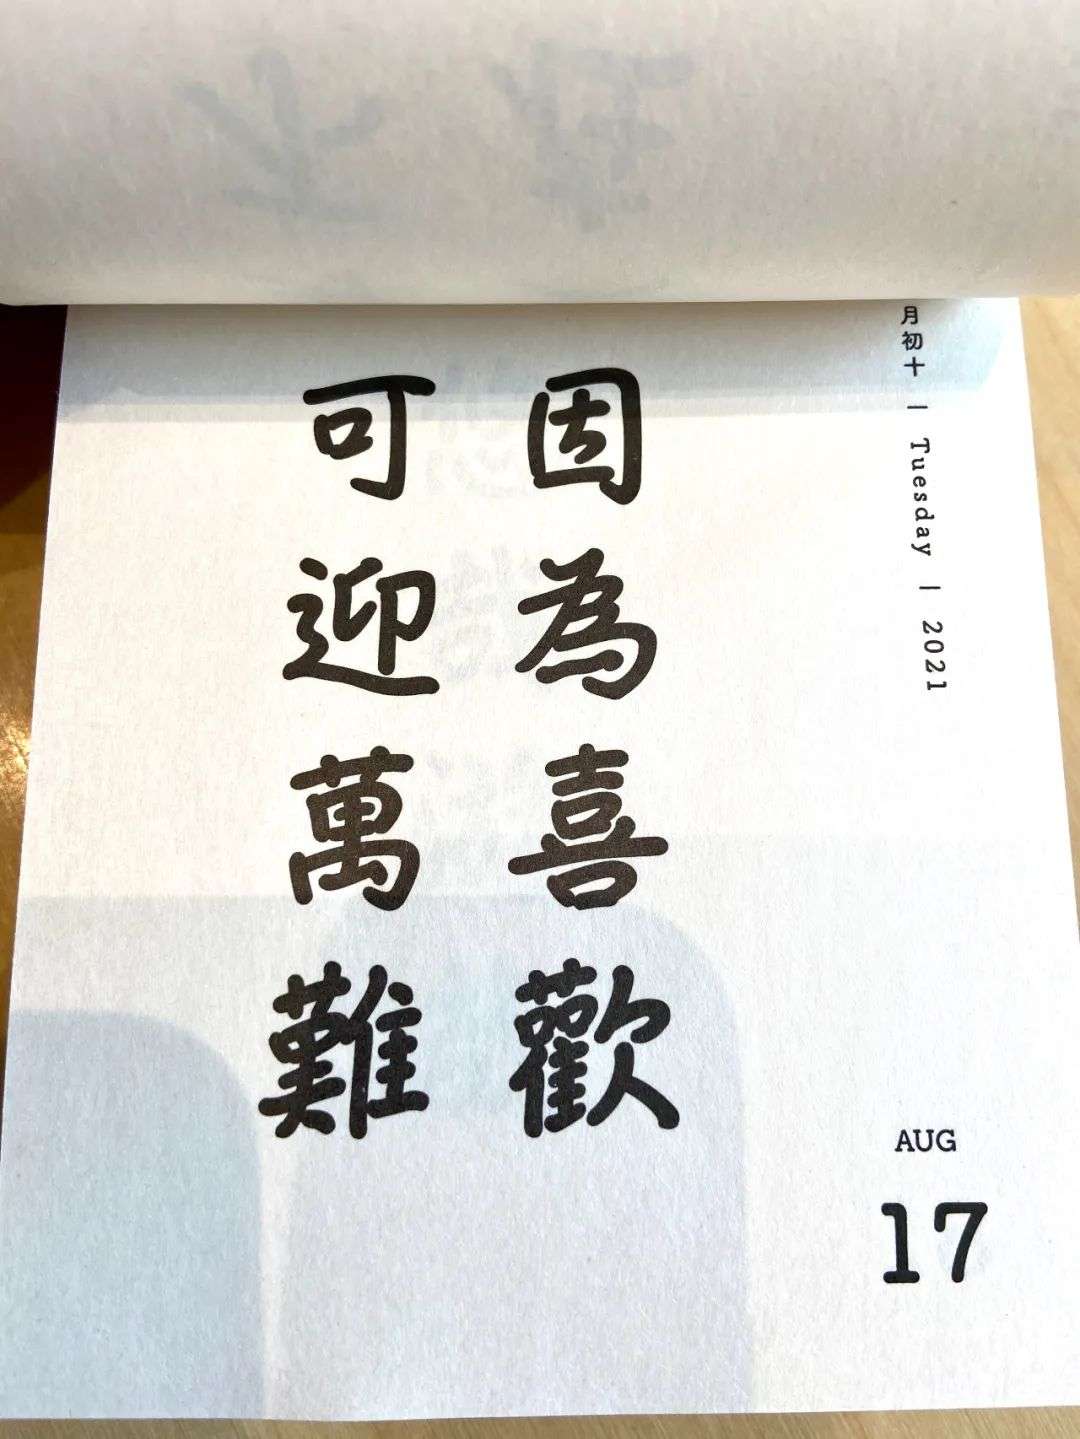 因為喜歡
可迎萬難
月初十 | Tuesday | 2021
AUG
17